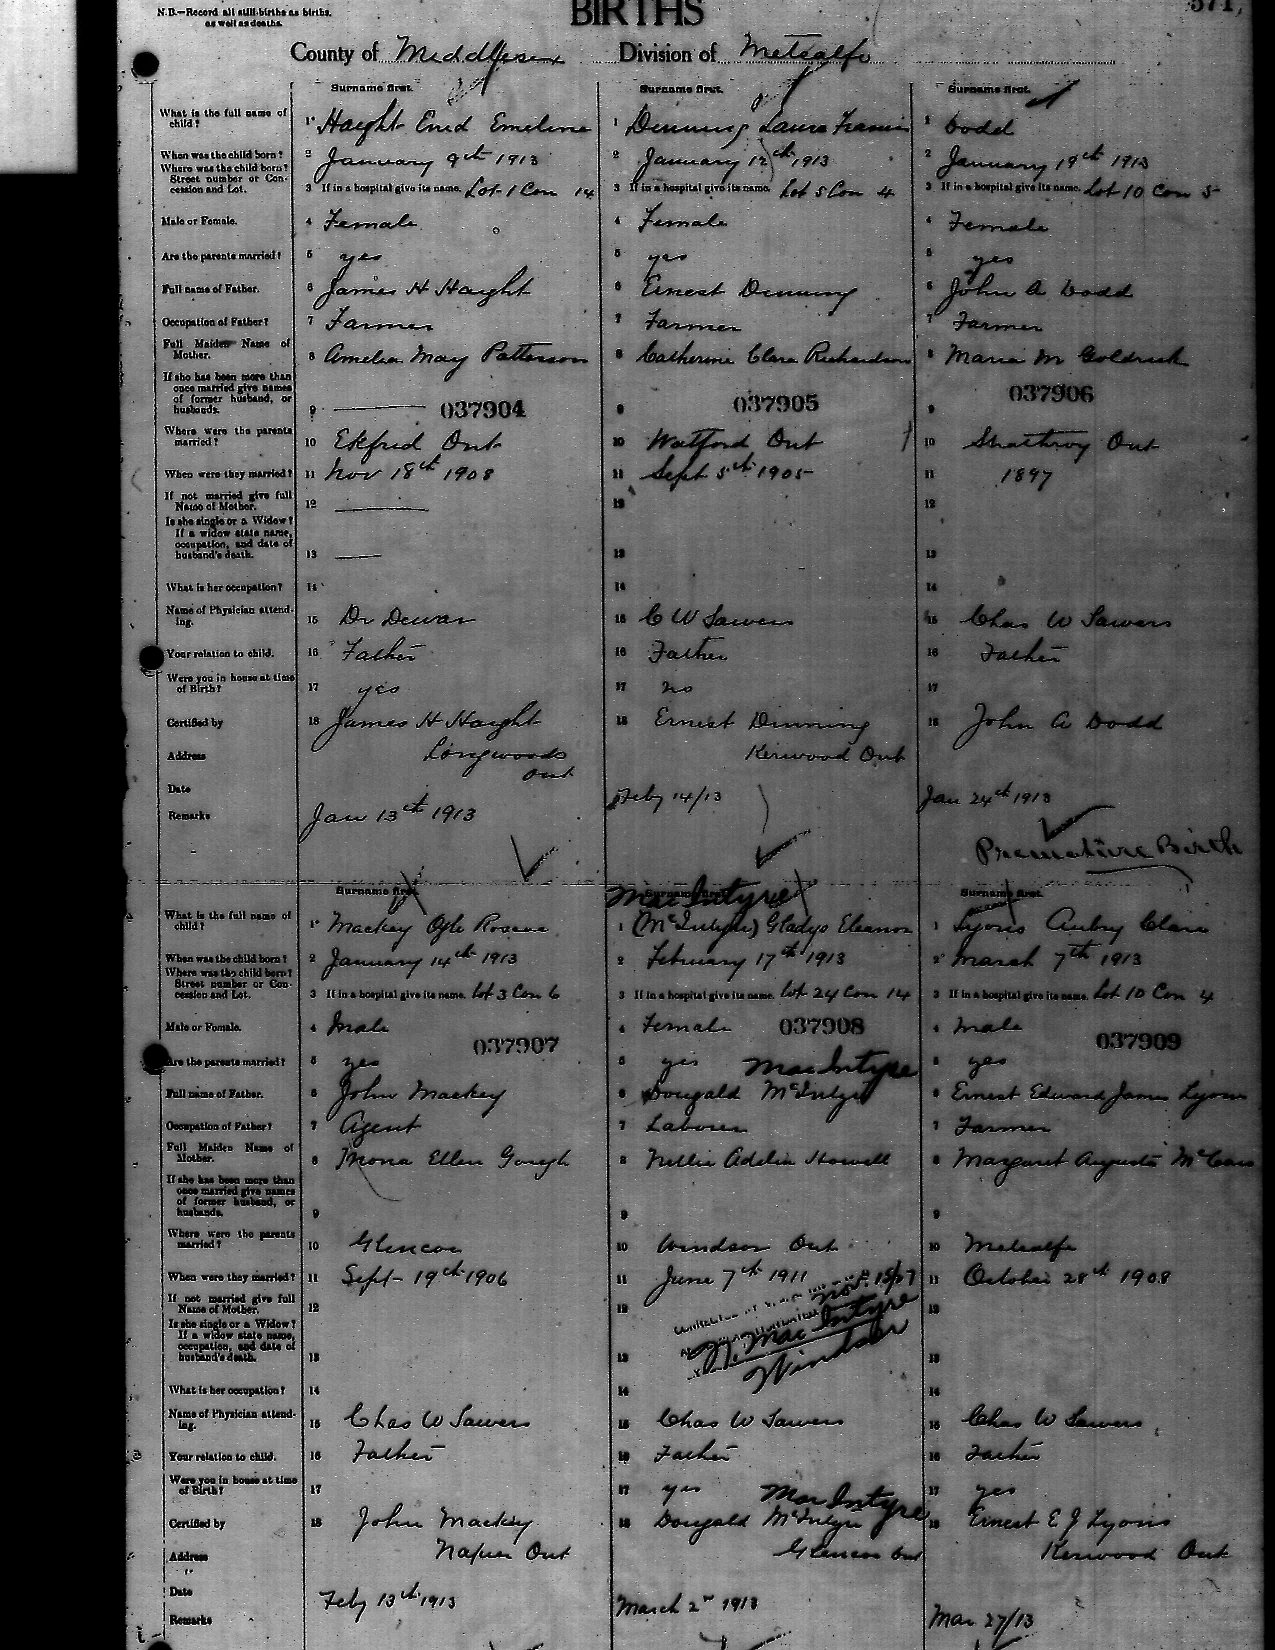 N.B.—Record all still-births as births, as well as deaths.
BIRTHS
371
County of Middlesex Division of Metcalfe
Surname first. Surname first. Surname first.
What is the full name of child? 1 Haight Enid Emeline 1 Dinning Laura Francis 1 Dodd
When was the child born? 2 January 9th 1913 2 January 12th 1913 2 January 19th 1913
Where was the child born? Street number or Concession and Lot. 3 If in a hospital give its name. Lot 1 Con 14 3 If in a hospital give its name. Lot 5 Con 4 3 If in a hospital give its name. Lot 10 Con 5
Male or Female. 4 Female 4 Female 4 Female
Are the parents married? 5 yes 5 yes 5 yes
Full name of Father. 6 James H Haight 6 Ernest Dinning 6 John A Dodd
Occupation of Father? 7 Farmer 7 Farmer 7 Farmer
Full Maiden Name of Mother. 8 Amelia May Patterson 8 Catherine Clara Richardson 8 Maria M Goldrick
If she has been more than once married give names of former husband, or husbands. 9 037904 9 037905 9 037906
Where were the parents married? 10 Ekfrid Ont 10 Watford Ont 10 Strathroy Ont
When were they married? 11 Nov 18th 1908 11 Sept 5th 1905 11 1897
If not married give full Name of Mother. 12 12 12
Is she single or a Widow? If a widow state name, occupation, and date of husband's death. 13 13 13
What is her occupation? 14 14 14
Name of Physician attending. 15 Dr Dewar 15 C W Sawers 15 Chas W Sawers
Your relation to child. 16 Father 16 Father 16 Father
Were you in house at time of Birth? 17 yes 17 no 17
Certified by 18 James H Haight 18 Ernest Dinning 18 John A Dodd
Address Longwoods Ont Kerwood Ont
Date Feby 14/13 Jan 24th 1913
Remarks Jan 13th 1913
Premature Birth
Surname first. Surname first. Surname first.
MacIntyre
What is the full name of child? 1 Mackey Ogle Roscoe 1 (McIntyre) Gladys Eleanor 1 Lyons Aubry Clare
When was the child born? 2 January 14th 1913 2 February 17th 1913 2 March 7th 1913
Where was the child born? Street number or Concession and Lot. 3 If in a hospital give its name. Lot 3 Con 6 3 If in a hospital give its name. Lot 24 Con 14 3 If in a hospital give its name. Lot 10 Con 4
Male or Female. 4 Male 4 Female 037908 4 Male
037907 037909
Are the parents married? 5 yes 5 yes MacIntyre 5 yes
Full name of Father. 6 John Mackey 6 Dougald McIntyre 6 Ernest Edward James Lyons
Occupation of Father? 7 Agent 7 Laborer 7 Farmer
Full Maiden Name of Mother. 8 Mona Ellen Gough 8 Nellie Adelia Howell 8 Margaret Augusta
If she has been more than once married give names of former husband, or husbands. 9 9 9
Where were the parents married? 10 Glencoe 10 Windsor Ont 10 Metcalfe
When were they married? 11 Sept 19th 1906 11 June 7th 1911 11 October 28th 1908
If not married give full Name of Mother. 12 12 Nov. 15/37 12
Is she single or a Widow? If a widow state name, occupation, and date of husband's death. 13 13 N. MacIntyre 13
Windsor
What is her occupation? 14 14 14
Name of Physician attending. 15 Chas W Sawers 15 Chas W Sawers 15 Chas W Sawers
Your relation to child. 16 Father 16 Father 16 Father
Were you in house at time of Birth? 17 17 yes MacIntyre 17 yes
Certified by 18 John Mackey 18 Dougald McIntyre 18 Ernest E J Lyons
Address Napier Ont Glencoe Ont Kerwood Ont
Date Feby 13th 1913 March 2nd 1913 Mar 27/13
Remarks